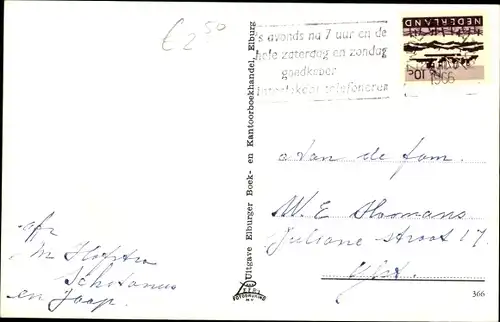 € 2 50
's avonds na 7 uur en de
hele zaterdag en zondag
goedkoper
telefoneren
NEDERLAND
10c
1966
Uitgave Elburger Boek- en Kantoorboekhandel, Elburg
Aan de fam.
W. E. Hoomans
Juliana straat 17
afz
Hofstra
Schotanus
en Jaap.
FOTODRUKING
366